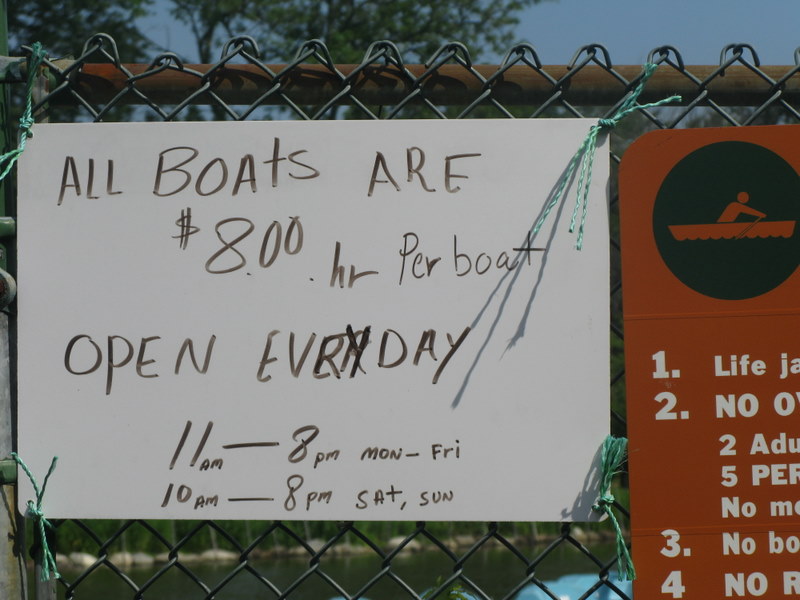 ALL BOAtS ARE
$8.00 .hr Per boat
OPEN EVRYDAY
11AM — 8pm MON – Fri
10AM — 8pm SAt, SUN
1. Life
2. NO
2
5
No
3. No
4 NO